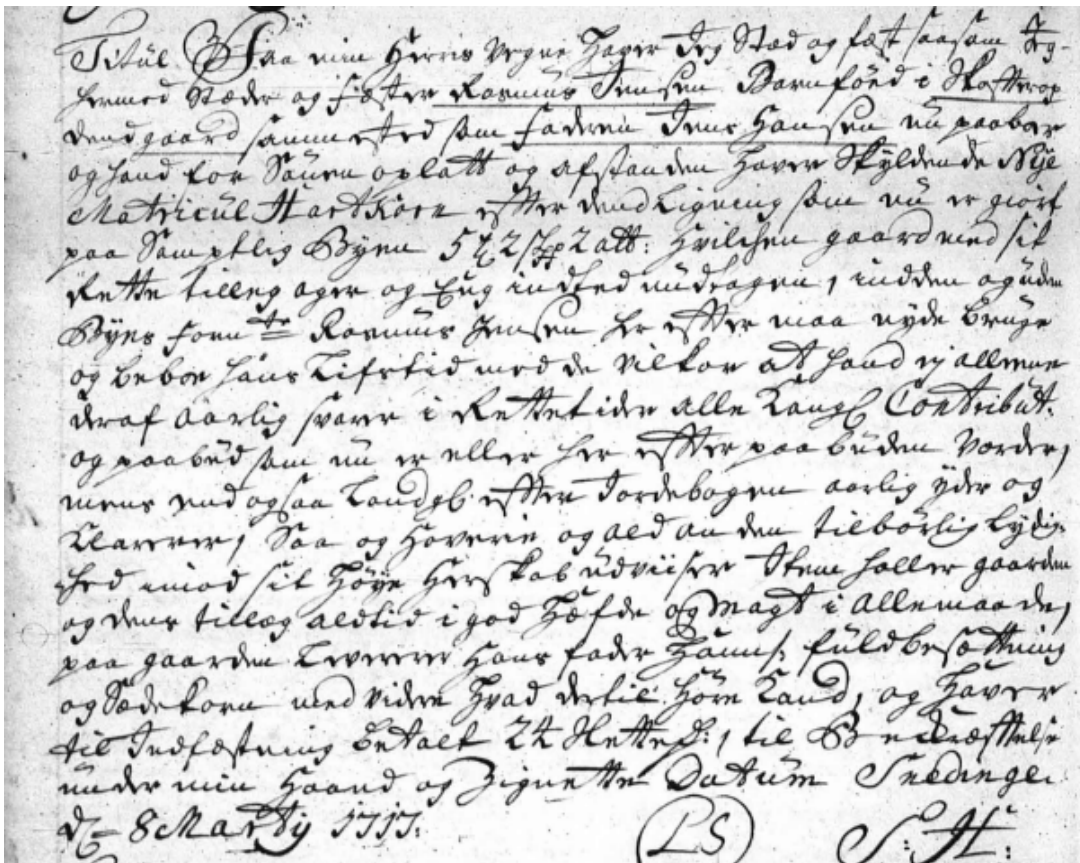 Titul Paa min Herris vegne Hafver Jeg Stæd og fæst saasom Jeg
hermed Stæder og Fæster Rasmus Jensen Barnföed i Skafterop
dend gaard sammested som faderen Jens Hansen nu paaboer
og hand for Sönen oplatt og afstanden Hafver Skyldende Nÿe
Matricul Hartkorn efter dend Ligning som nu er giort
paa Samptlig Byen 5 td 2 skp 2 alb: Hvilchen gaard med sit
Rette tilleg ager og Eng indted undtagen, indden og uden
Byens formte Rasmus Jensen her efter maa nyde bruge
og beboe hans Lifstid med de vilkor at hand ey alleene
deraf aarlig svarer i Rettetider alle Kongl Contribut:
og paabud som nu er eller her efter paabuden vorder,
mens end ogsaa Landgb: efter Jordebogen aarlig yder og
Clarerer, Saa og Hoverie og ald anden tilbörlig Lydig-
hed imod sit Höye Herskab udviiser Item holler gaarden
og dens tilleg aldtid i god Hæfde og Magt i Allemaade,
paa gaarden Leverer hans fader Hannem fuld besætning
og Sædekorn med videre Hvad dertil Höre Kand, og Hafver
til Indfæstning betalt 24 Slettedr:, til Bekræftelse
under min Haand og Zignette Datum Snedinge.
d 8 Marty 1717.
(LS) S: H: